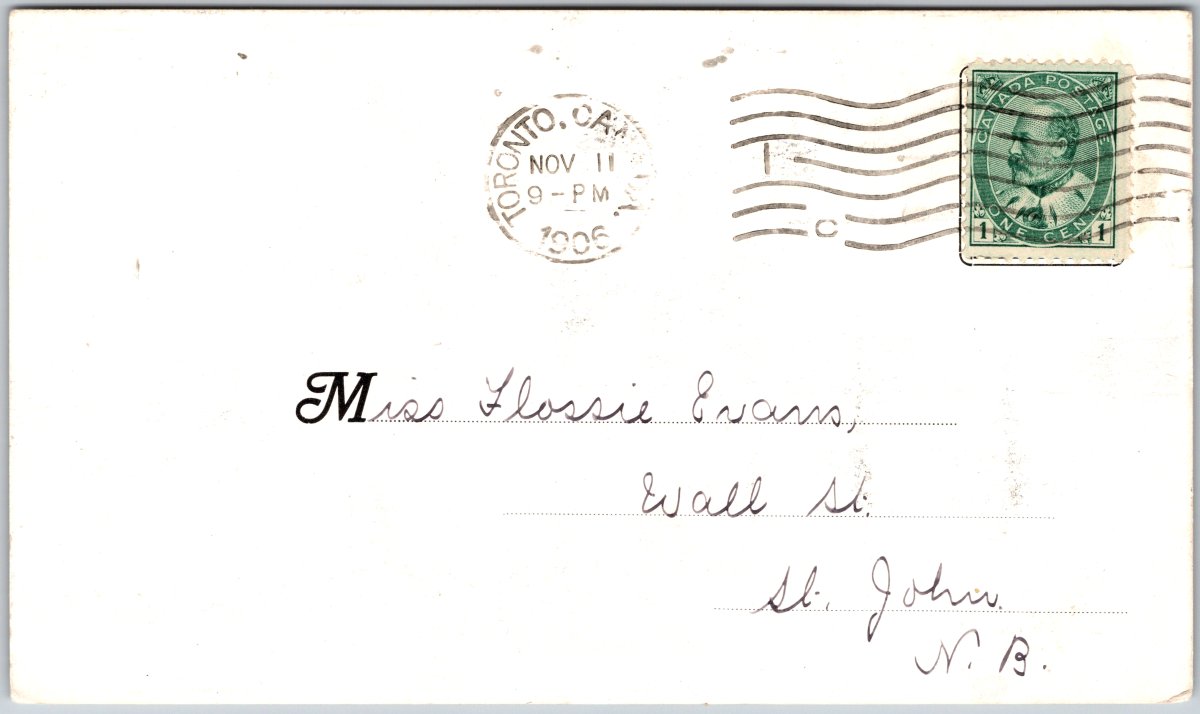 TORONTO, CAN
NOV 11
9-PM
1906
1
C
CANADA POSTAGE
ONE CENT
1 1
Miss Flossie Evans,
Wall St.
St. John.
N. B.